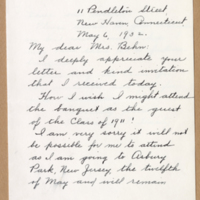 11 Pendleton Street
New Haven, Connecticut
May 6, 1932.
My dear Mrs. Behm:
I deeply appreciate your
letter and kind invitation
that I received today.
How I wish I might attend
the banquet as the guest
of the Class of 1911!
I am very sorry it will not
be possible for me to attend
as I am going to Asbury
Park, New Jersey the twelfth
of May and will remain